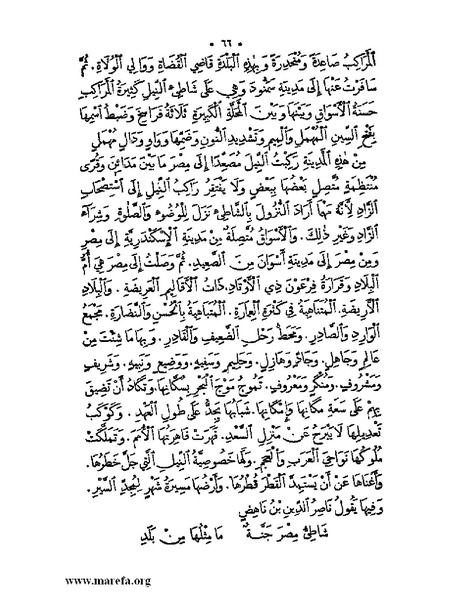 • ٦٦ •
المراكب صاعدة ومنحدرة وبهذه البلدة قاضي القضاة ووالي الولاة. ثمّ
سافرت عنها إلى مدينة سمنود وهي على شاطئ النيل كثيرة المراكب
حسنة الأسواق وبينها وبين المحلّة الكبيرة ثلاثة فراسخ وضبط اسمها
بفتح السين المهمل والميم وتشديد النون وضمّها وواو ودال مهمل
من هذه المدينة ركبت النيل مصعدًا إلى مصر ما بين مدائن وقرى
منتظمة متّصل بعضها ببعض ولا يفتقر راكب النيل إلى استصحاب
الزاد لأنّه مهما أراد النزول بالشاطئ نزل للوضوء والصلوة وشراء
الزاد وغير ذلك. والأسواق متّصلة من مدينة الإسكندرية إلى مصر
ومن مصر إلى مدينة أسوان من الصعيد. ثمّ وصلت إلى مصر هي أمّ
البلاد وقرارة فرعون ذي الأوتاد. ذات الأقاليم العريضة. والبلاد
الأريضة. المتناهية في كثرة العمارة. المتباهية بالحسن والنضارة. مجمع
الوارد والصادر. ومحطّ رحل الضعيف والقادر. وبها ما شئت من
عالم وجاهل. وجادّ وهازل. وحليم وسفيه. ووضيع ونبيه. وشريف
ومشروف. ومنكر ومعروف. تموج موج البحر بسكّانها. وتكاد أن تضيق
بهم على سعة مكانها وإمكانها. شبابها يجدّ على طول العهد. وكوكب
تعديلها لا يبرح عن منزل السعد. قهرت قاهرتها الأمم. وتملّكت
ملوكها نواحي العرب والعجم. ولها خصوصيّة النيل التي جلّ خطرها.
وأغناها عن أن يستمدّ القطر قطرها. وأرضها مسيرة شهر لمجدّ السير.
وفيها يقول ناصر الدين بن ناهض
شاطئ مصر جنّة ما مثلها من بلد
www.marefa.org